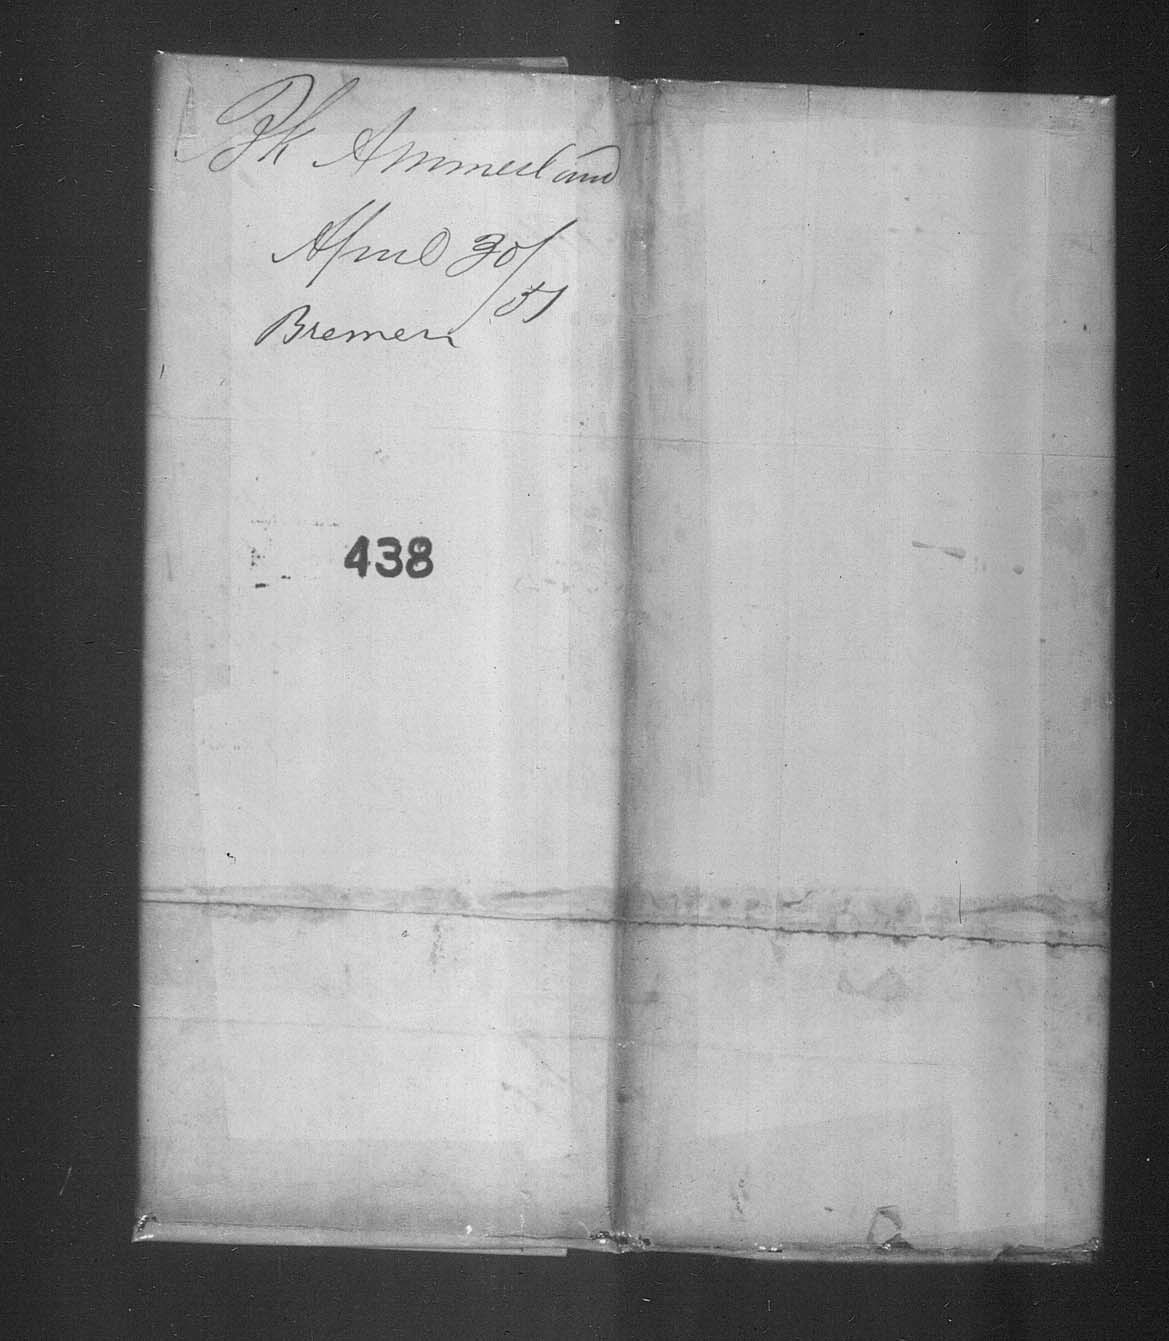 Bk Ammerland
April 30/51
Bremen
438